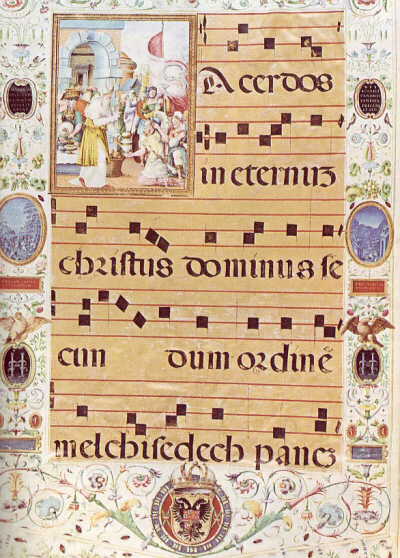 Acerdos
in eternuʒ
chriſtus dominus se
cun dum ordinē
melchisedech paneʒ